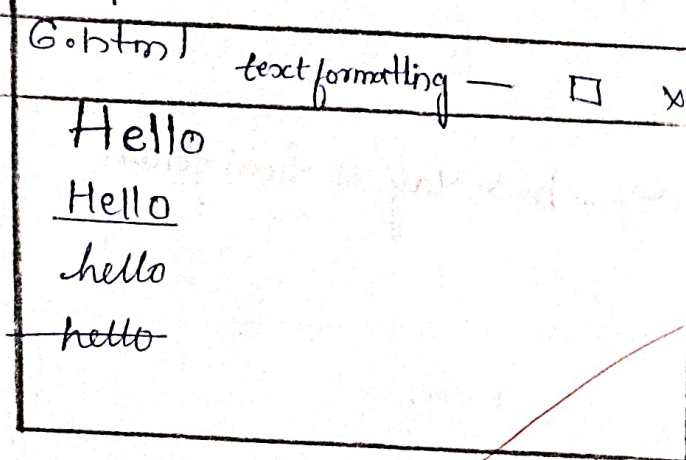 6.html
text formatting — □ x
Hello
Hello
hello
hello